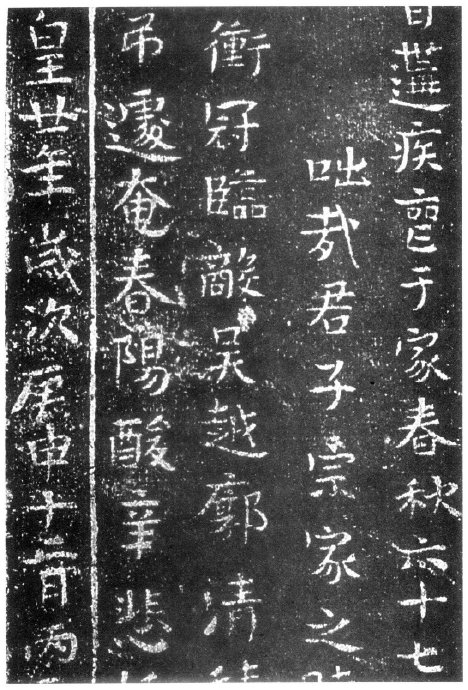 遘疾于家春秋六十七
咄哉君子宗家之
衝冠臨敵吳越廓清
吊遽奄春陽酸辛悲
皇廿年歲次庚申十二月丙